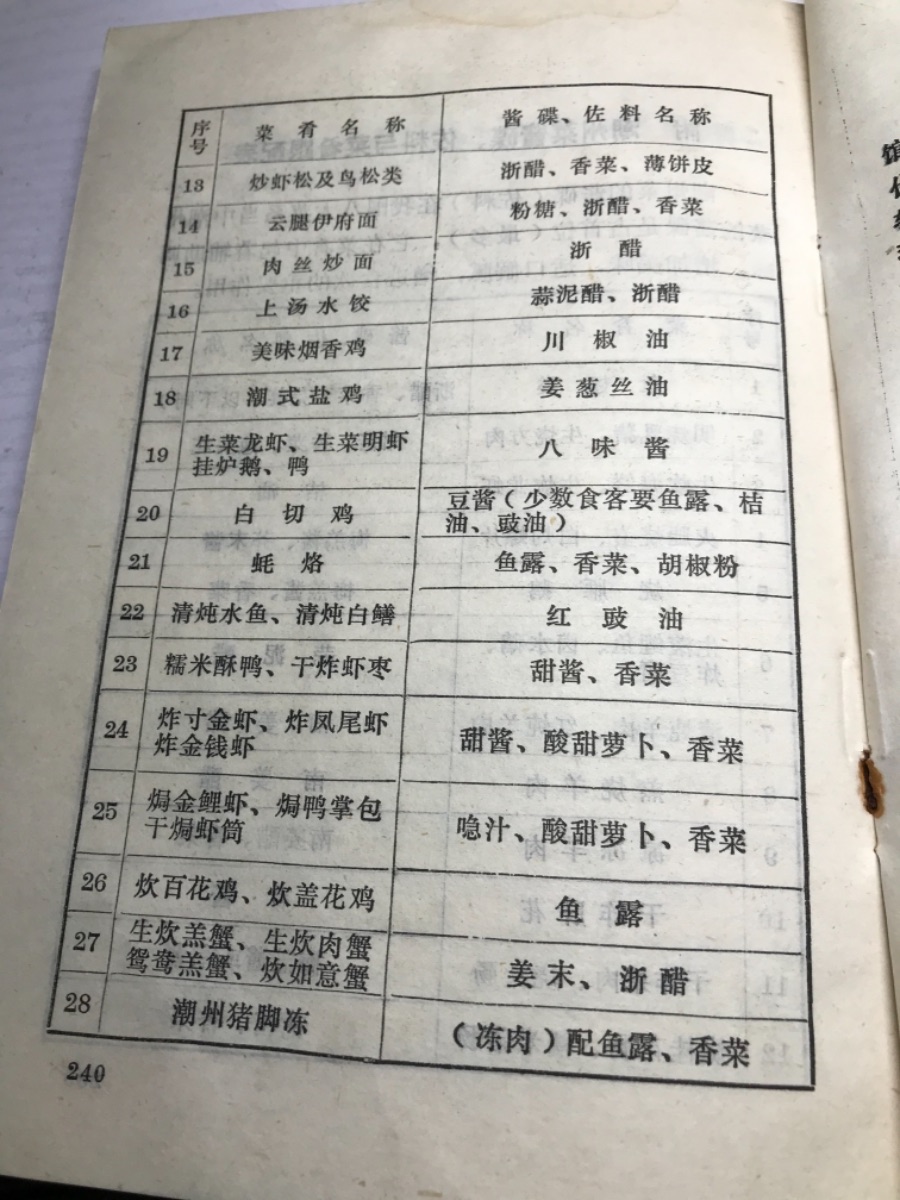 序号 菜肴名称 酱碟、佐料名称
13 炒虾松及鸟松类 浙醋、香菜、薄饼皮
14 云腿伊府面 粉糖、浙醋、香菜
15 肉丝炒面 浙醋
16 上汤水饺 蒜泥醋、浙醋
17 美味烟香鸡 川椒油
18 潮式盐鸡 姜葱丝油
19 生菜龙虾、生菜明虾 八味酱
挂炉鹅、鸭
20 白切鸡 豆酱（少数食客要鱼露、桔
油、豉油）
21 蚝烙 鱼露、香菜、胡椒粉
22 清炖水鱼、清炖白鳝 红豉油
23 糯米酥鸭、干炸虾枣 甜酱、香菜
24 炸寸金虾、炸凤尾虾 甜酱、酸甜萝卜、香菜
炸金钱虾
25 焗金鲤虾、焗鸭掌包 喼汁、酸甜萝卜、香菜
干焗虾筒
26 炊百花鸡、炊盖花鸡 鱼露
27 生炊羔蟹、生炊肉蟹 姜末、浙醋
鸳鸯羔蟹、炊如意蟹
28 潮州猪脚冻 （冻肉）配鱼露、香菜
240